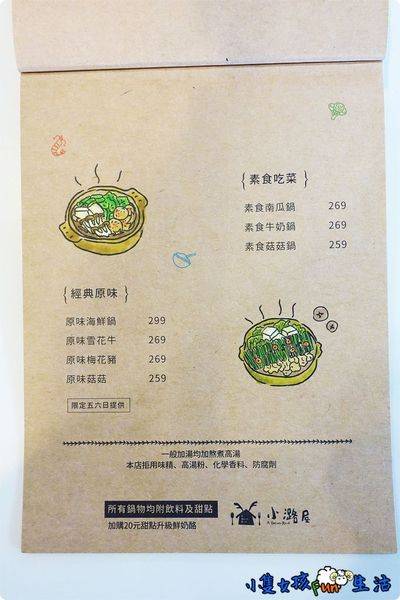 素食吃菜
素食南瓜鍋 269
素食牛奶鍋 269
素食菇菇鍋 259
經典原味
原味海鮮鍋 299
原味雪花牛 269
原味梅花豬 269
原味菇菇 259
限定五六日提供
一般加湯均加熬煮高湯
本店拒用味精、高湯粉、化學香料、防腐劑
所有鍋物均附飲料及甜點
加購20元甜點升級鮮奶酪
小潞屋
小隻女孩Fun生活